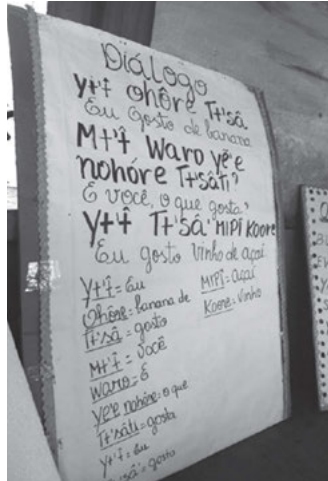 Diálogo
Yɨ'ɨ̂ ohôre Tɨ'sâ
Eu Gosto de banana
Mɨ'ɨ̂ Waro yẽ'e
nohóre Tɨ'sâti?
E você, o que gosta?
Yɨ'ɨ̂ Tɨ'sâ MIPÎ Koore
Eu gosto Vinho de açaí.
Yɨ'ɨ̂ = Eu
Ohôre = banana de
Tɨ'sâ = gosto
Mɨ'ɨ̂ = você
Waro = E
yẽ'e nohóre = o que
Tɨ'sâti = gosta
Yɨ'ɨ̂ = Eu
= gosto
MIPÎ = açaí
Koore = Vinho